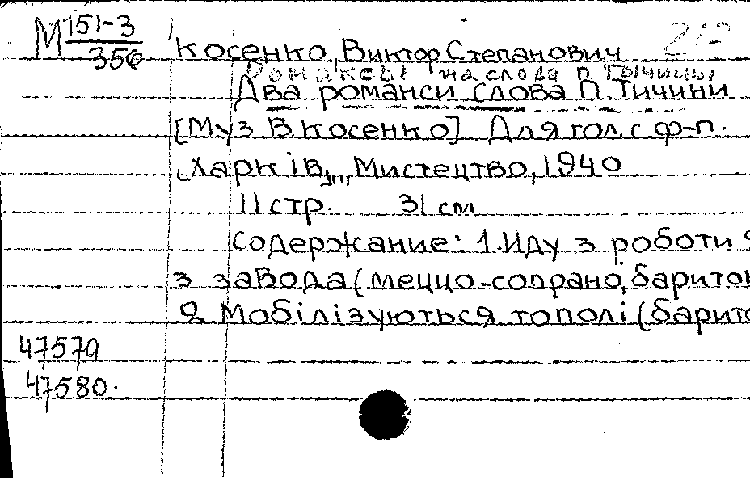 М 151-3
356
Косенко, Виктор Степанович
Романсы на слова П. Тычины
Два романси слова П. Тичини
[Муз В Косенко] Для гол с ф-п.
Харків, Мистецтво, 1940
11 стр. 31 см
Содержание: 1. Иду з роботи я
з завода (меццо-сопрано, баритон
2. Мобілізуються тополі (барито
47579
47580.